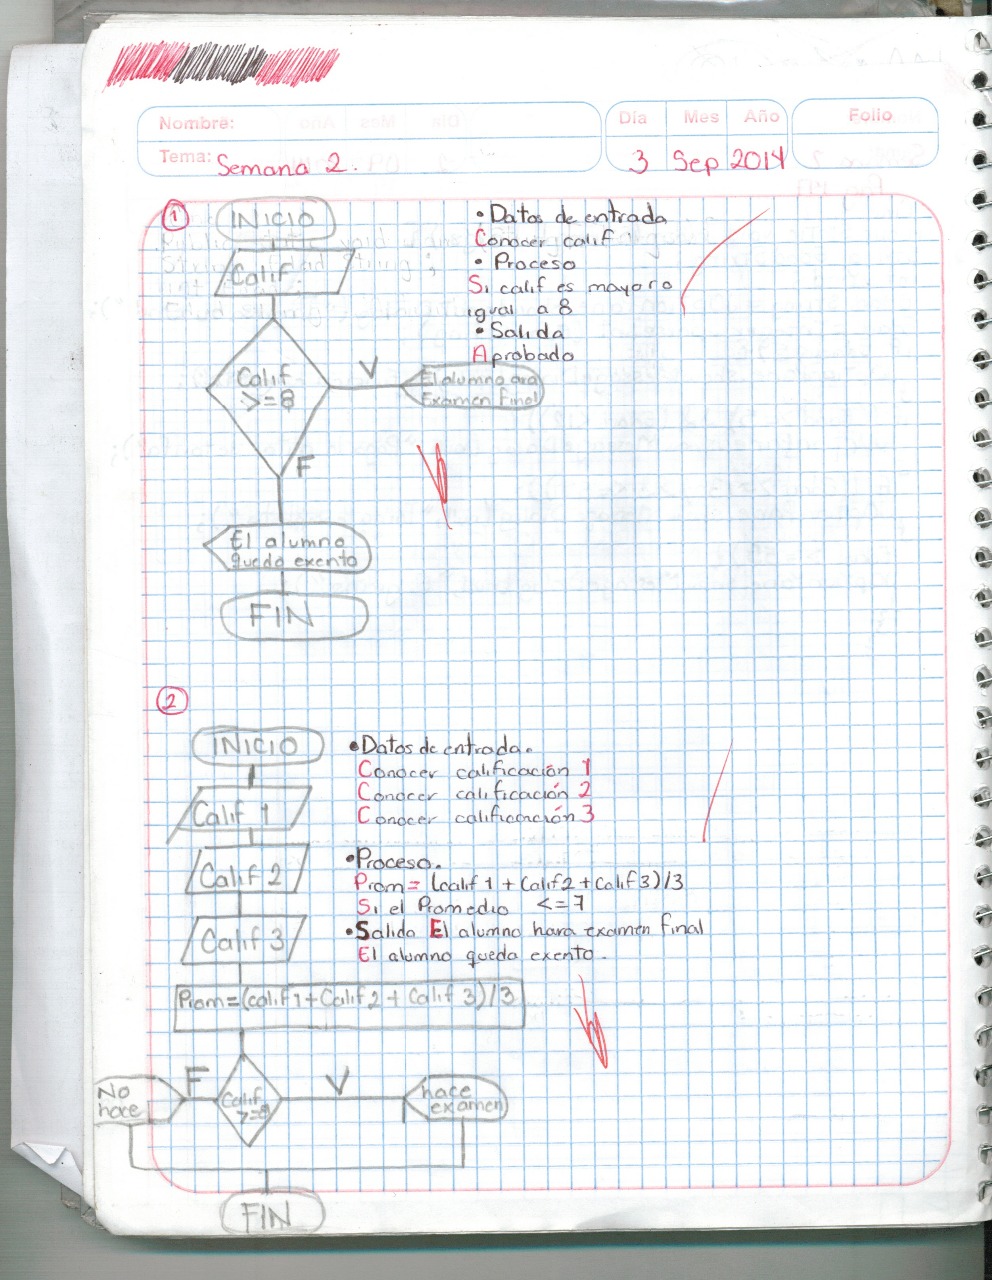 Nombre:
Tema: Semana 2.
Día Mes Año
3 Sep 2014
Folio
1
INICIO
Calif
Calif
>=8
V
El alumno ara
Examen Final
F
El alumno
queda exento
FIN
• Datos de entrada
Conocer calif
• Proceso
Si calif es mayor o
igual a 8
• Salida
Aprobado
2
INICIO
Calif 1
Calif 2
Calif 3
Prom=(calif1+Calif2+Calif 3)/3
F
V
No
hace
Calif
hace
examen
FIN
• Datos de entrada.
Conocer calificación 1
Conocer calificación 2
Conocer calificación 3
• Proceso.
Prom= (calif 1 + Calif2 + Calif 3)/3
Si el Promedio <=7
• Salida El alumno hara examen final
El alumno queda exento.